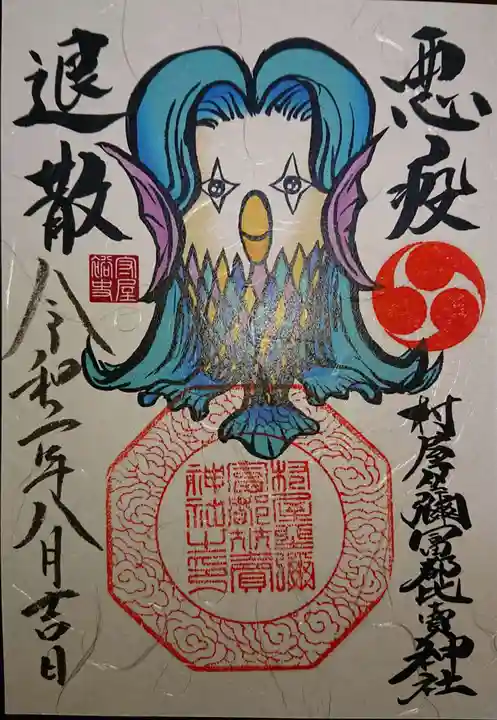 悪疫
退散
村屋坐彌冨都比賣神社
令和二年八月吉日
村屋坐彌
冨都比賣
神社之印